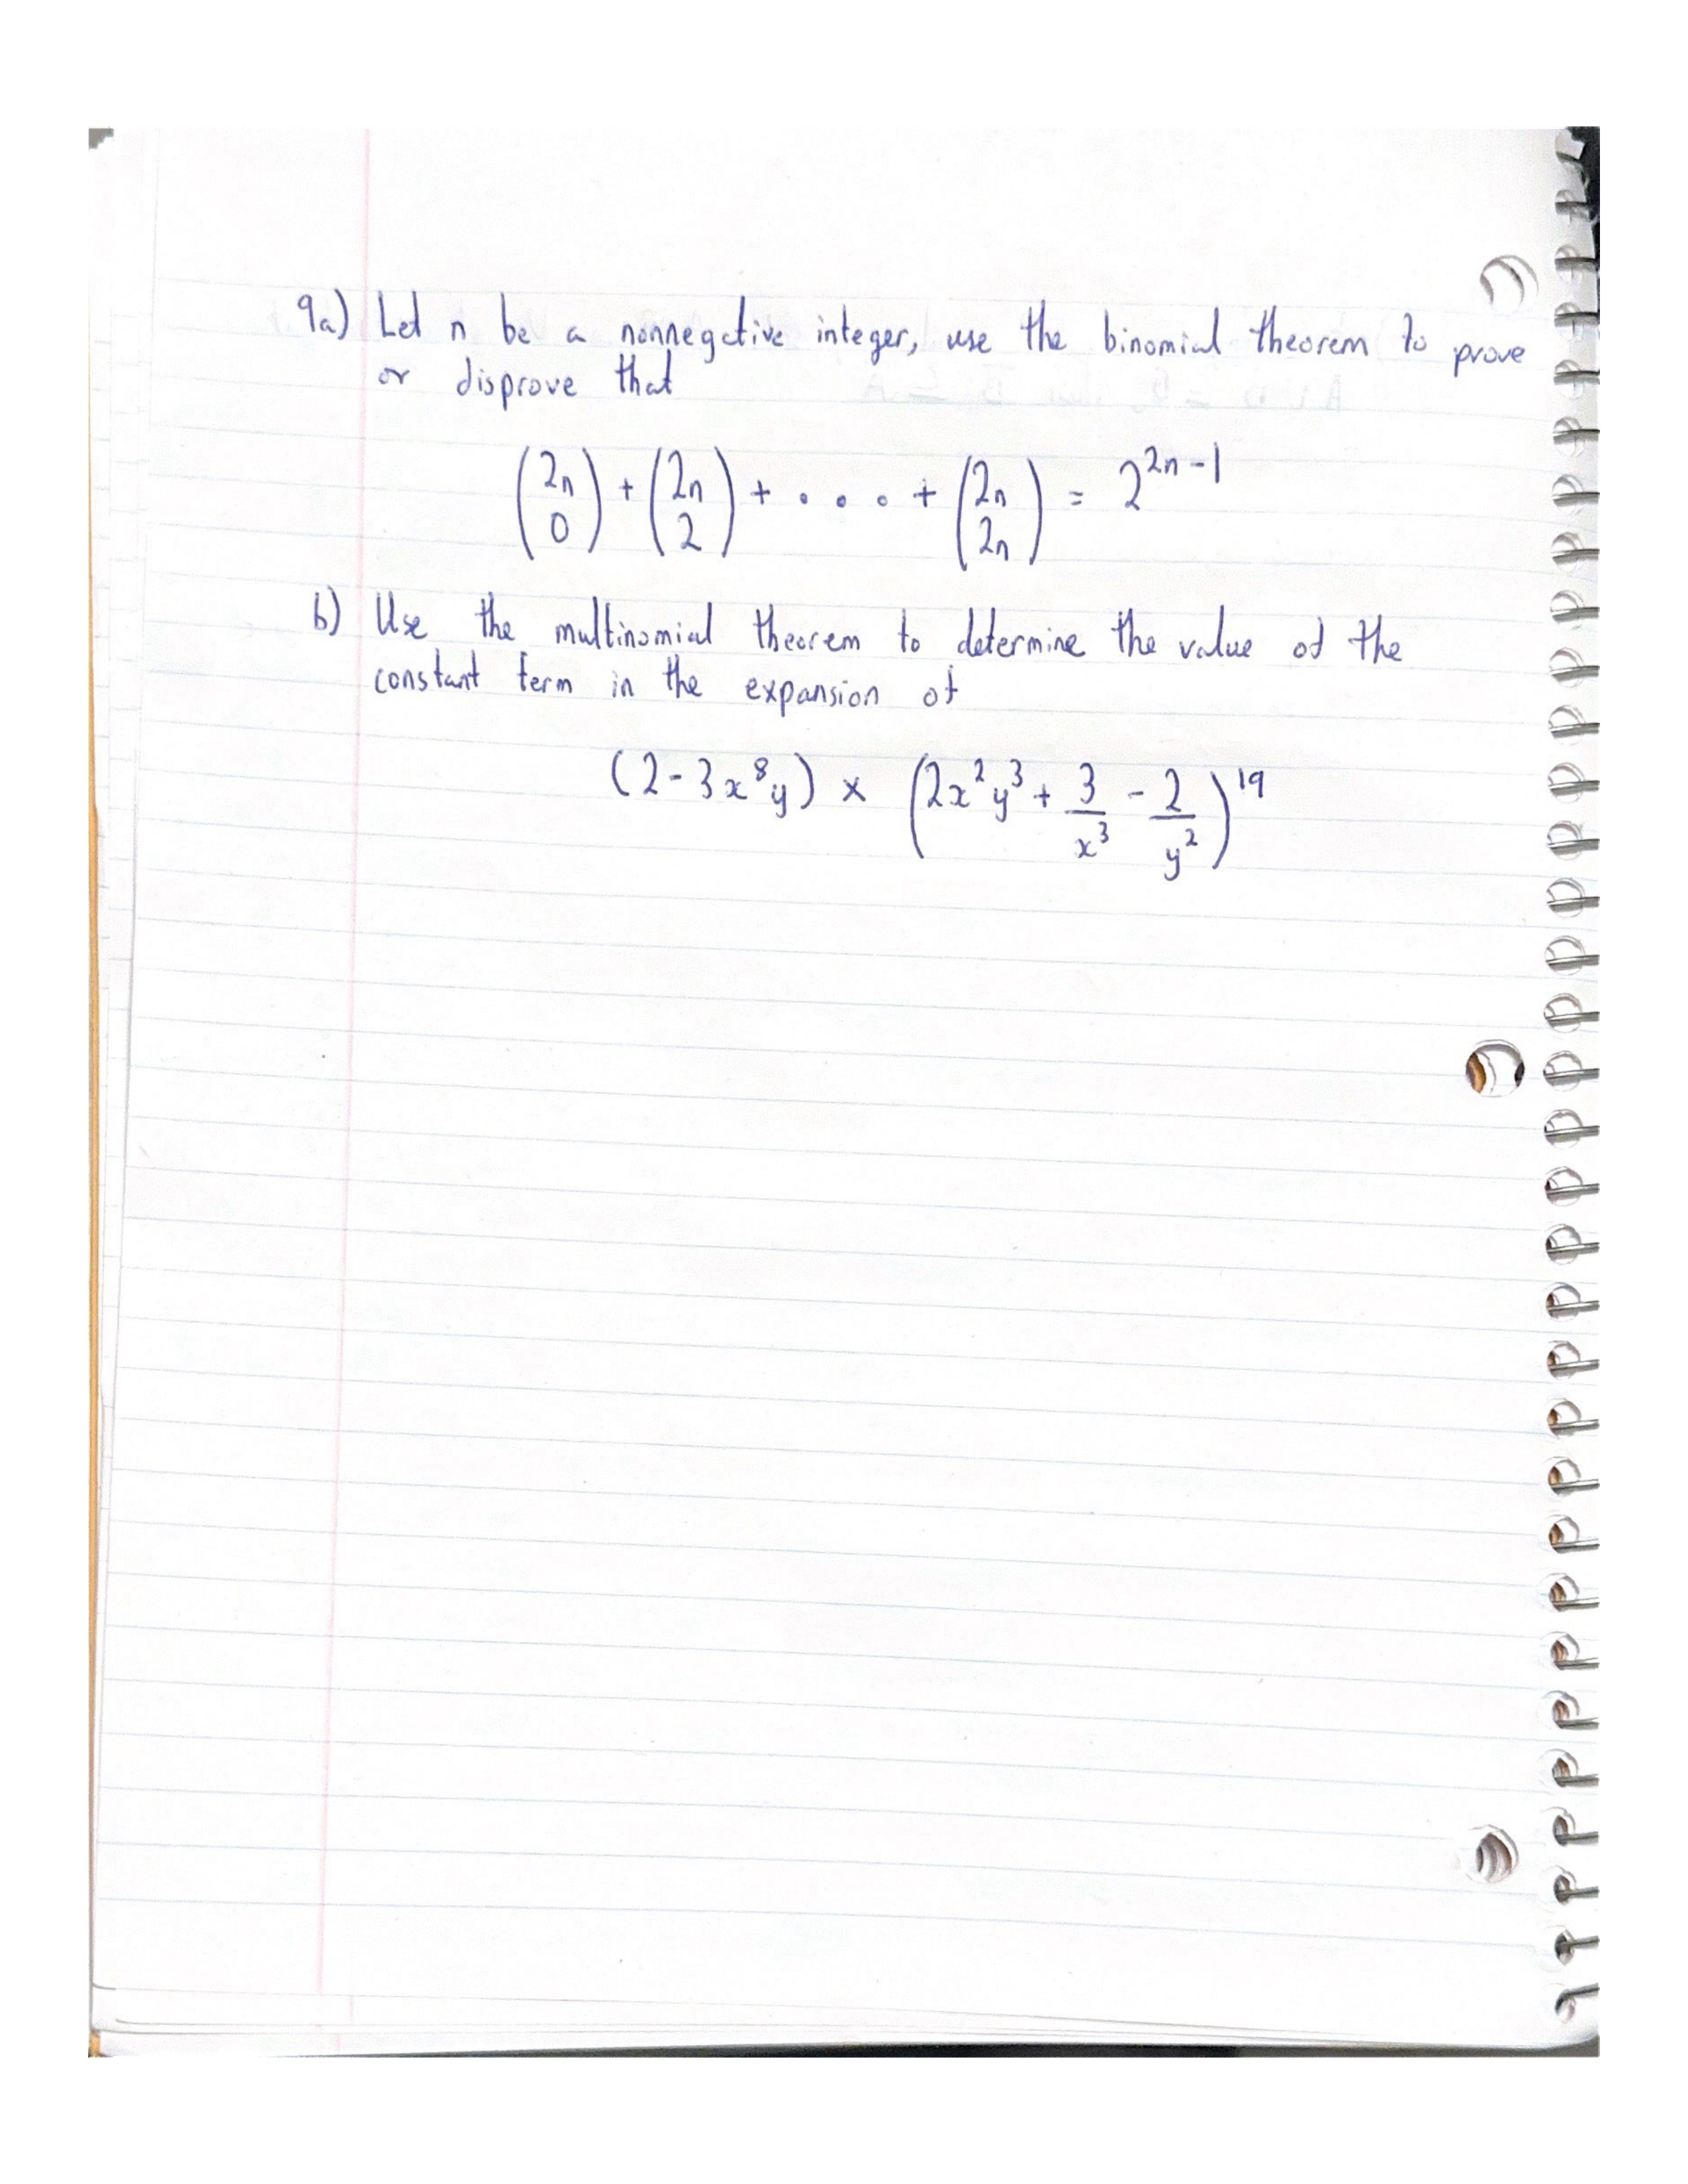 9a) Let n be a nonnegative integer, use the binomial theorem to prove
or disprove that
(2n 0) + (2n 2) + . . . + (2n 2n) = 2^{2n-1}
b) Use the multinomial theorem to determine the value of the
constant term in the expansion of
(2 - 3x^8y) × (2x^2y^3 + 3/x^3 - 2/y^2)^19